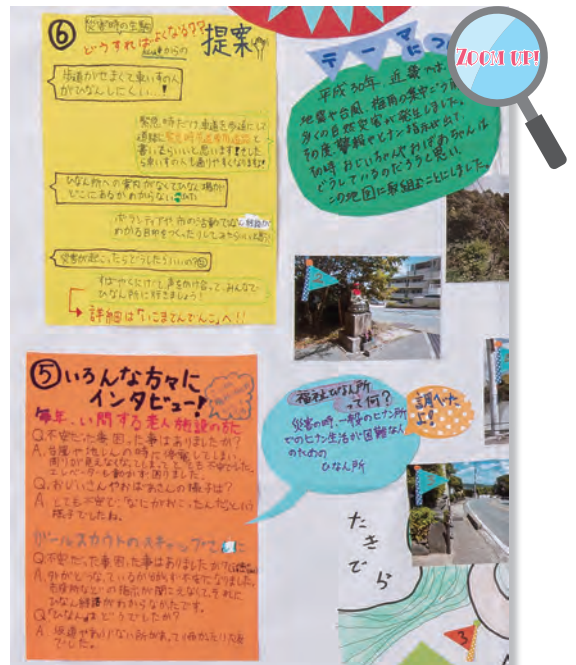 ⑥
災害時の生駒
どうすればよくなる??
からの
提案
歩道がせまくて車いすの人
がひなんしにくい…!
緊急時だけ車道を歩道にして
道路に緊急時歩道専用道路と
書いてもらいいと思います!そした
ら車いすの人も通りやすくなりますね!
ひなん所への案内がなくてひなん場が
どこにあるかわからない
ボランティアや市の活動でひなん経路が
わかる目印をつくったりしてみたら
災害が起こったらどうしたらいいの?
すばやくにげて、声をかけ合って、みんなで
ひなん所に行きましょう!
詳細は「いこまてんでんこ」へ!!
テーマにつ
ZOOM UP!
平成30年、近畿では、
地震や台風、梅雨の集中ごう雨
多くの自然災害が発生しました。
その度、警報やヒナン指示が出て、
その時おじいちゃんやおばあちゃんは
どうしているのだろうと思い
この地図に取組むことにしました。
2
⑤いろんな方々に
インタビュー!
毎年、い問する老人施設のかた
Q.不安だった事困った事はありましたか?
A.台風や地しんの時に停電してしまい、
周りが見えなくなってしまってとても不安でした。
エレベーターも動かず、困りました。
Q.おじいさんやおばあさんの様子は?
A.とても不安で、「なにがおこったんだ」という
様子でしたね。
ガールスカウトのスキャップて
に
Q.不安だった事困った事はありましたか?
A.外がどうなっているか分からず不安になりました。
市役所などの指示が聞こえなくて、それに
ひなん経路がわからなかったです。
Q「ひなん」はどうでしたか?
A.歩道やあかりがない所があって
でした。
福祉ひなん所
って何?
災害の時、一般のヒナン所
でのヒナン生活が困難な人
のための
ひなん所
調べた
よ!
たきでら
3